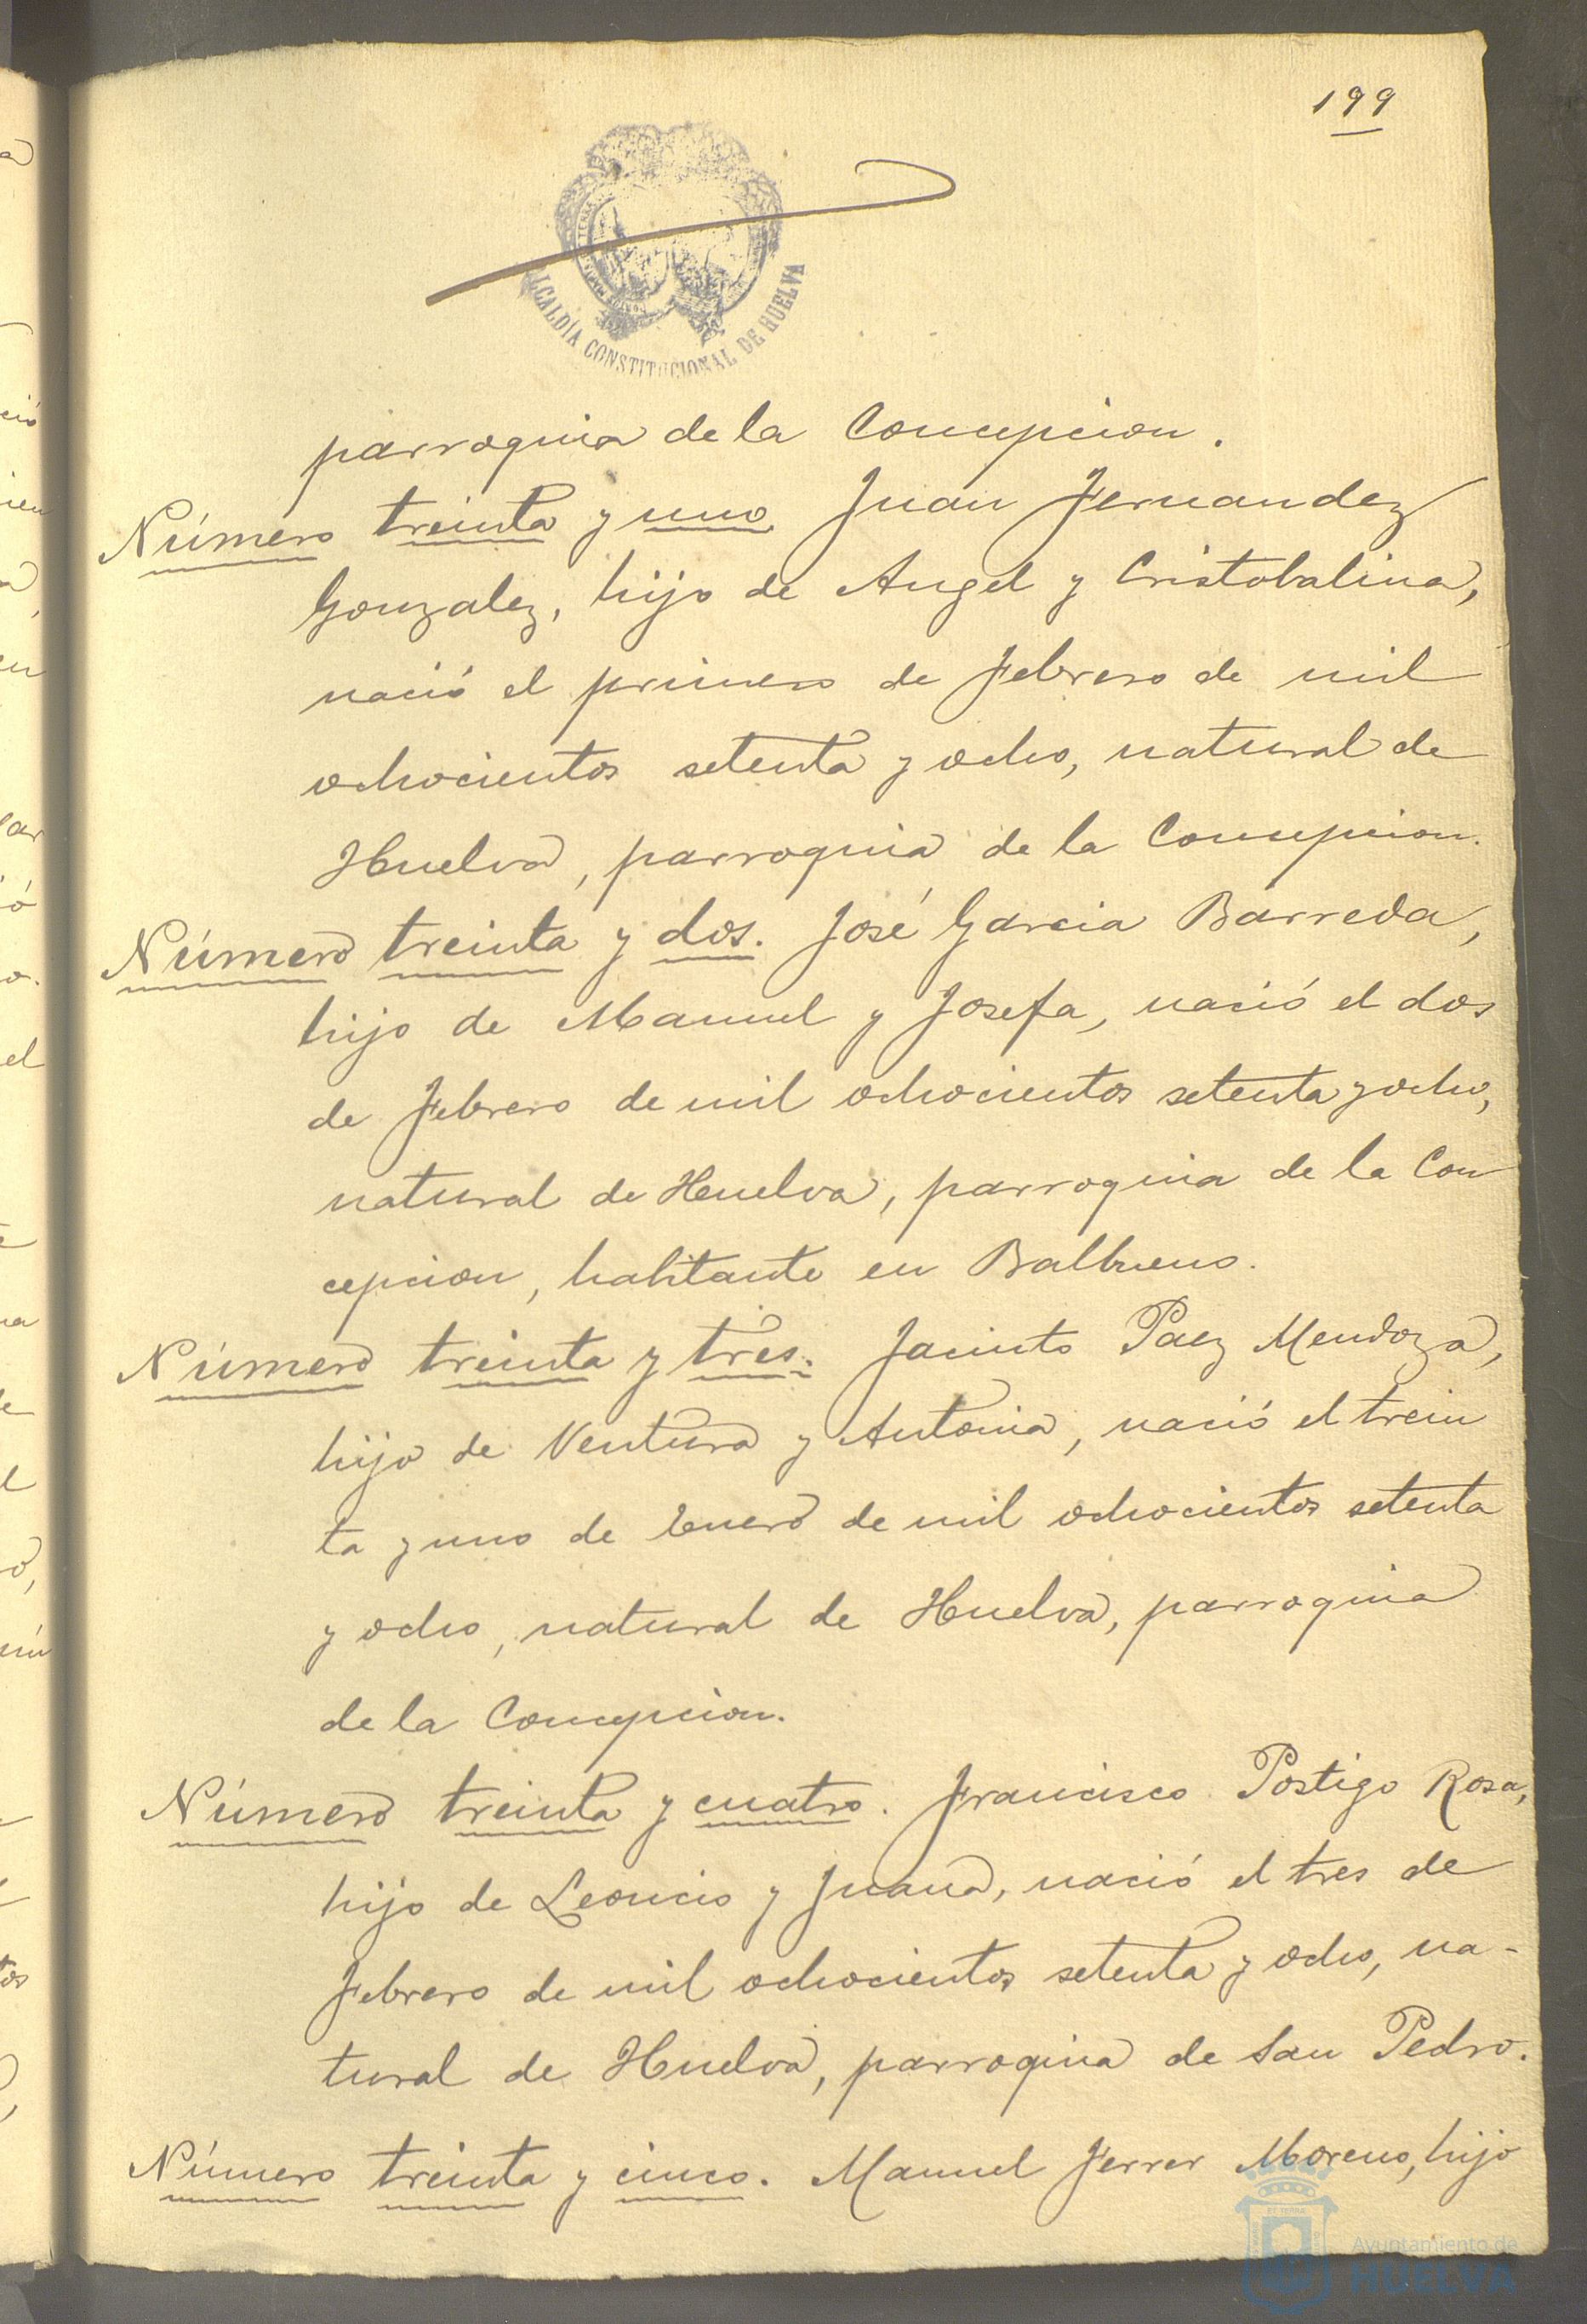 199
ALCALDÍA CONSTITUCIONAL DE HUELVA
parroquia de la Concepcion.
Número treinta y uno Juan Fernandez
Gonzalez, hijo de Angel y Cristobalina,
nació el primero de Febrero de mil
ochocientos setenta y ocho, natural de
Huelva, parroquia de la Concepcion.
Número treinta y dos. José Garcia Barreda,
hijo de Manuel y Josefa, nació el dos
de Febrero de mil ochocientos setenta y ocho,
natural de Huelva, parroquia de la Con
cepcion, habitante en Balbueno.
Número treinta y tres. Jacinto Paez Mendoza,
hijo de Ventura y Antonia, nació el trein
ta y uno de Enero de mil ochocientos setenta
y ocho, natural de Huelva, parroquia
de la Concepcion.
Número treinta y cuatro. Francisco Postigo Rosa,
hijo de Leoncio y Juana, nació el tres de
Febrero de mil ochocientos setenta y ocho, na-
tural de Huelva, parroquia de San Pedro.
Número treinta y cinco. Manuel Ferrer Moreno, hijo
Ayuntamiento de
HUELVA